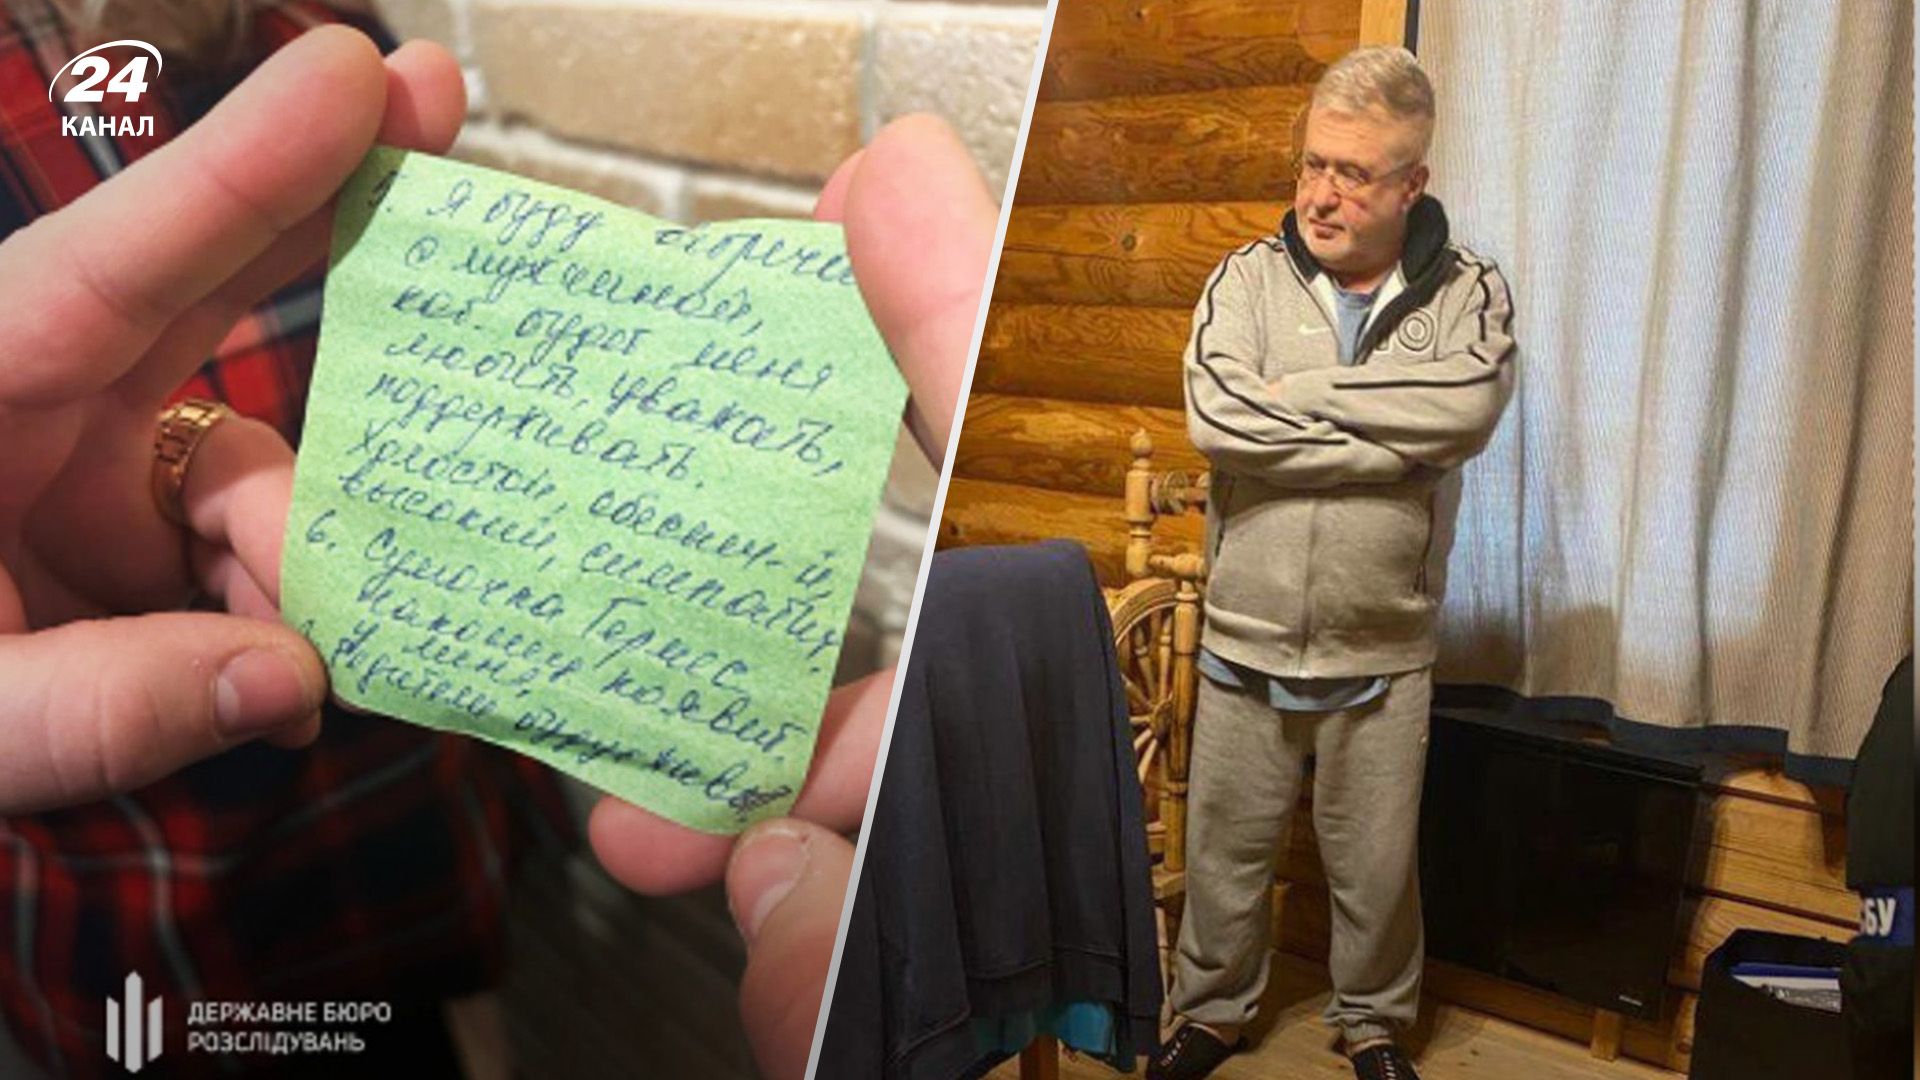 24
КАНАЛ
5. Я буду
с мужчиной,
кот. будет меня
любить, уважать,
поддерживать.
Холостой, обеспеч-й,
высокий, симпатич.
6. Сумочка Гермес
наконец появит.
у меня,
Родители
ДЕРЖАВНЕ БЮРО
РОЗСЛІДУВАНЬ
СБУ